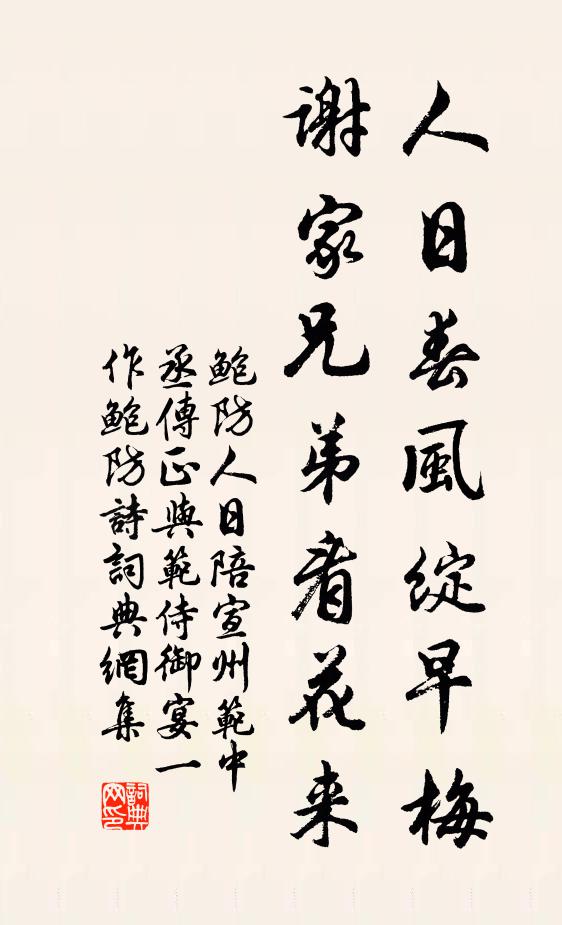 人日春風綻早梅
謝家兄弟看花来
鮑防人日陪宣州範中
丞傳正與範侍御宴一
作鮑防詩詞典網集
詞典
网印